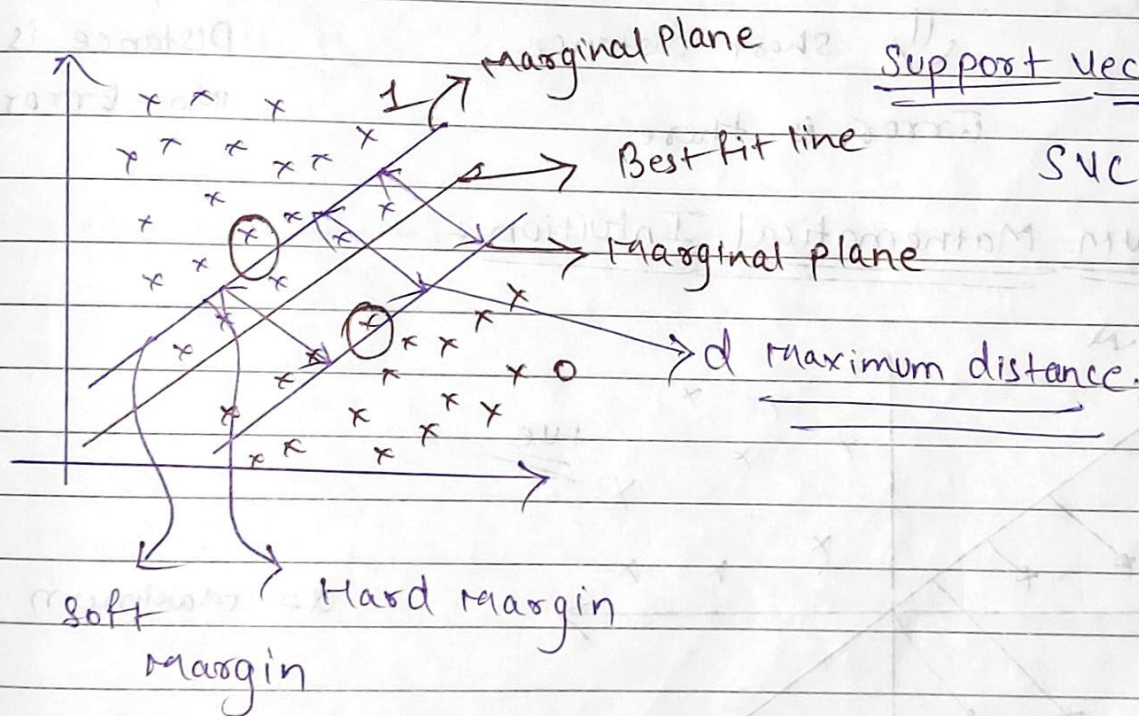 Marginal Plane
Support Vec
1
Best fit line
SVC
Marginal plane
d Maximum distance.
0
Soft
Margin
Hard Margin